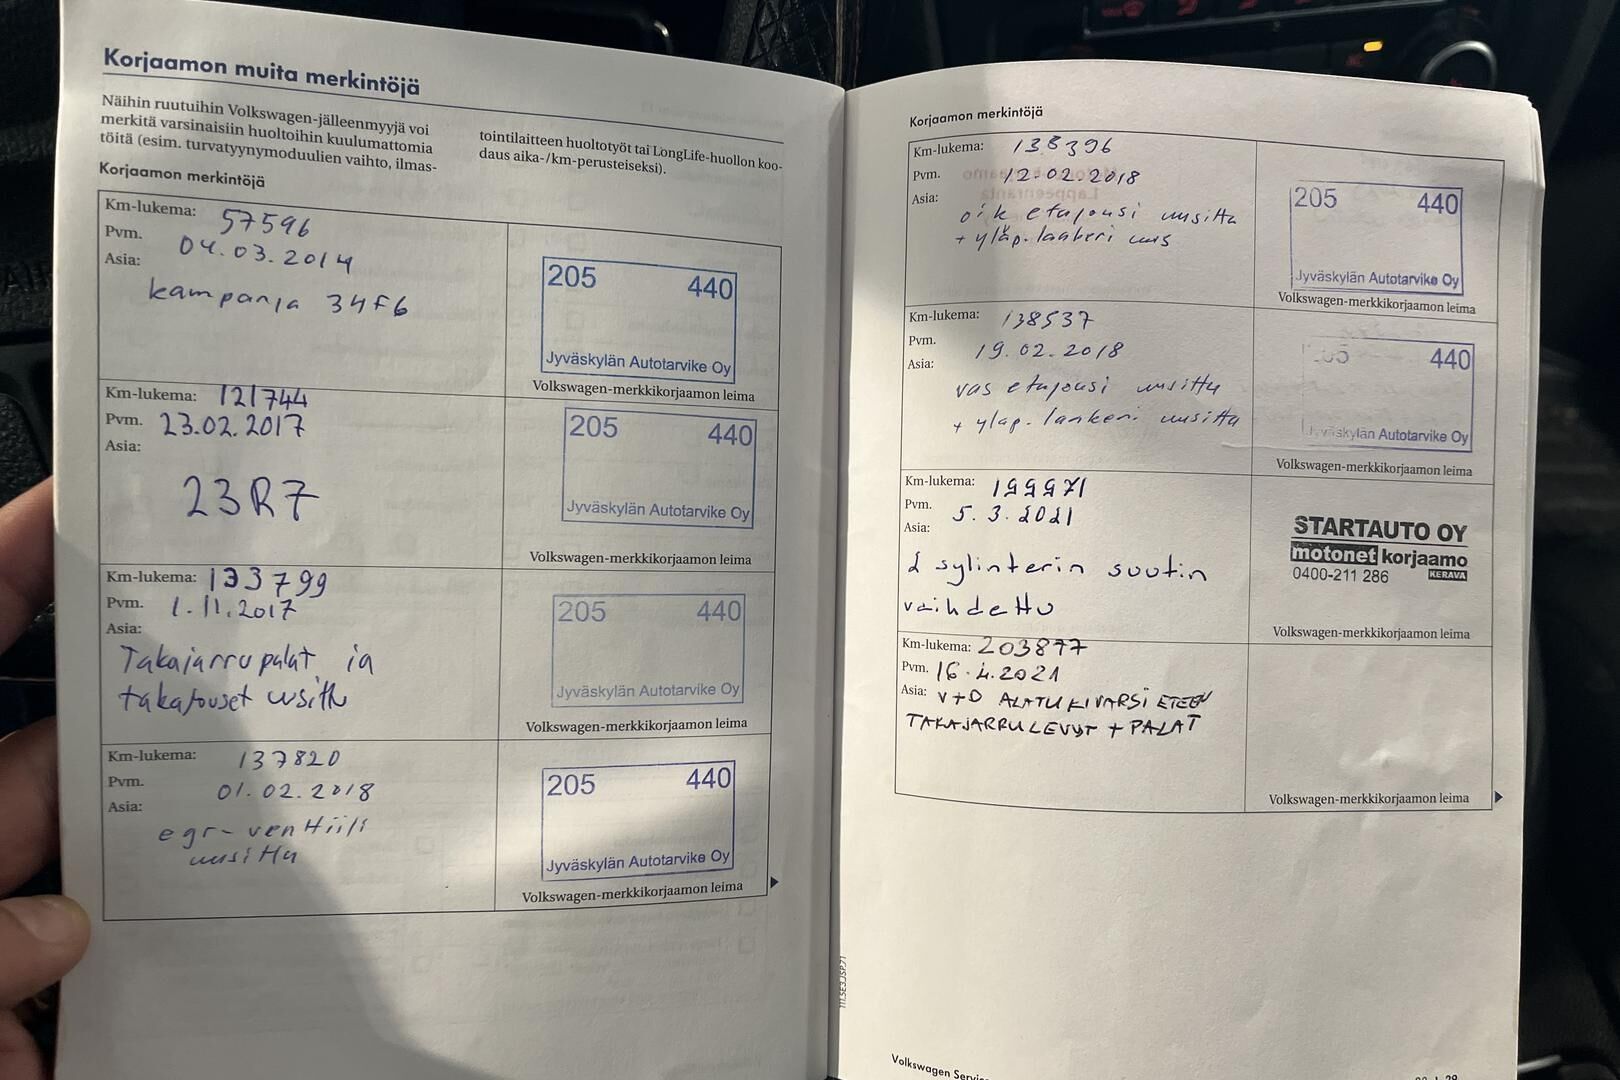 Korjaamon muita merkintöjä
Näihin ruutuihin Volkswagen-jälleenmyyjä voi
merkitä varsinaisiin huoltoihin kuulumattomia
töitä (esim. turvatyynymoduulien vaihto, ilmas-
tointilaitteen huoltotyöt tai LongLife-huollon koo-
daus aika-/km-perusteiseksi).
Korjaamon merkintöjä
Km-lukema: 57596
Pvm. 04.03.2014
Asia:
kampanja 34F6
205 440
Jyväskylän Autotarvike Oy
Volkswagen-merkkikorjaamon leima
Km-lukema: 121744
Pvm. 23.02.2017
Asia:
23R7
205 440
Jyväskylän Autotarvike Oy
Volkswagen-merkkikorjaamon leima
Km-lukema: 133799
Pvm. 1.11.2017
Asia:
Takajarrupalat ja
takajouset usittu
205 440
Jyväskylän Autotarvike Oy
Volkswagen-merkkikorjaamon leima
Km-lukema: 137820
Pvm. 01.02.2018
Asia:
egr-venttiili
uusittu
205 440
Jyväskylän Autotarvike Oy
Volkswagen-merkkikorjaamon leima
Korjaamon merkintöjä
Km-lukema: 138396
Pvm. 12.02.2018
Asia:
oik etujousi uusittu
+ yläp. laakeri uus
205 440
Jyväskylän Autotarvike Oy
Volkswagen-merkkikorjaamon leima
Km-lukema: 138537
Pvm. 19.02.2018
Asia:
vas etujousi uusittu
+ yläp. laakeri uusittu
205 440
Jyväskylän Autotarvike Oy
Volkswagen-merkkikorjaamon leima
Km-lukema: 199971
Pvm. 5.3.2021
Asia:
2 sylinterin suutin
vaihdettu
STARTAUTO OY
motonet korjaamo
0400-211 286 KERAVA
Volkswagen-merkkikorjaamon leima
Km-lukema: 203877
Pvm. 16.4.2021
Asia: V+O ALATUKIVARSI ETEEN
TAKAJARRULEVYT + PALAT
Volkswagen-merkkikorjaamon leima
111.5E3.JSP.71